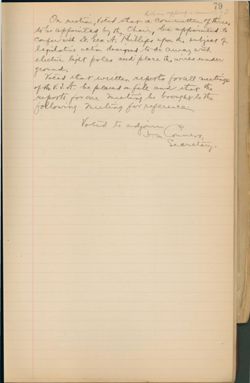 79
On motion, Voted that a Committee of three,
to be appointed by the Chair, be appointed to
confer with Dr. Geo. A. Phillips upon the subject of
legislative action designed to do away with
electric light poles and place the wires under
ground.
Voted that written reports for all meetings
of the V.I.A. be placed on file and that the
reports for one meeting be brought to the
following meeting for reference.
Voted to adjourn
Secretary.